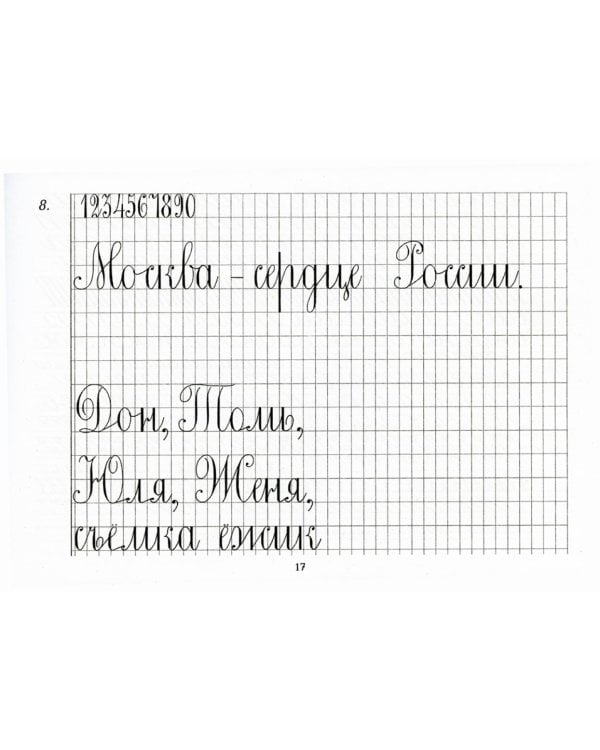 8.
1234567890
Москва – сердце России.
Дон, Томь,
Юля, Женя,
съёмка ёжик
17